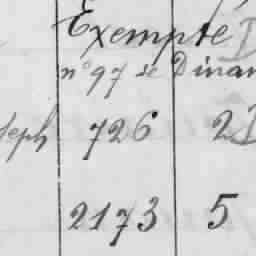 Exempté D
n° 97 de Dinan
seph 726 2D
2173 5